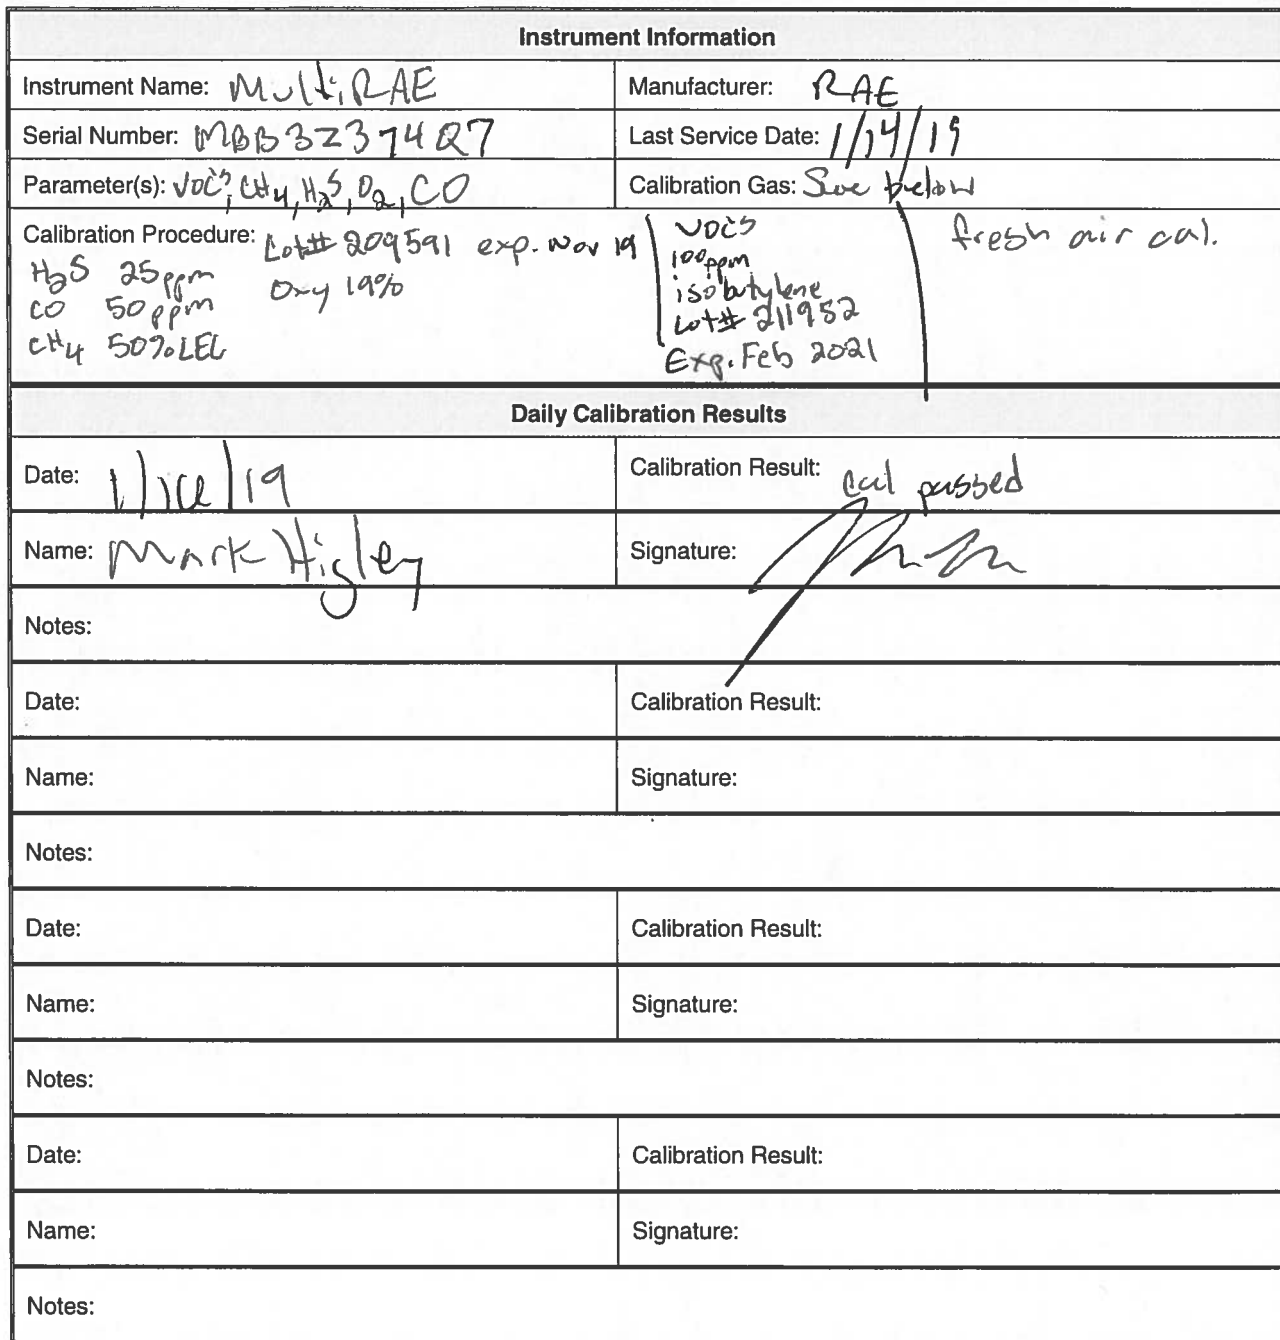 Instrument Information
Instrument Name: MultiRAE
Manufacturer: RAE
Serial Number: MBB3Z374Q7
Last Service Date: 1/14/19
Parameter(s): VOC's, CH4, H2S, O2, CO
Calibration Gas: See below
Calibration Procedure: Lot# 209591 exp. Nov 19
H2S 25ppm Oxy 19%
CO 50ppm
CH4 50%LEL
VOC's
100ppm
isobutylene
Lot# 211952
Exp. Feb 2021
fresh air cal.
Daily Calibration Results
Date: 1/16/19
Calibration Result: cal passed
Name: Mark Higley
Signature:
Notes:
Date:
Calibration Result:
Name:
Signature:
Notes:
Date:
Calibration Result:
Name:
Signature:
Notes:
Date:
Calibration Result:
Name:
Signature:
Notes: